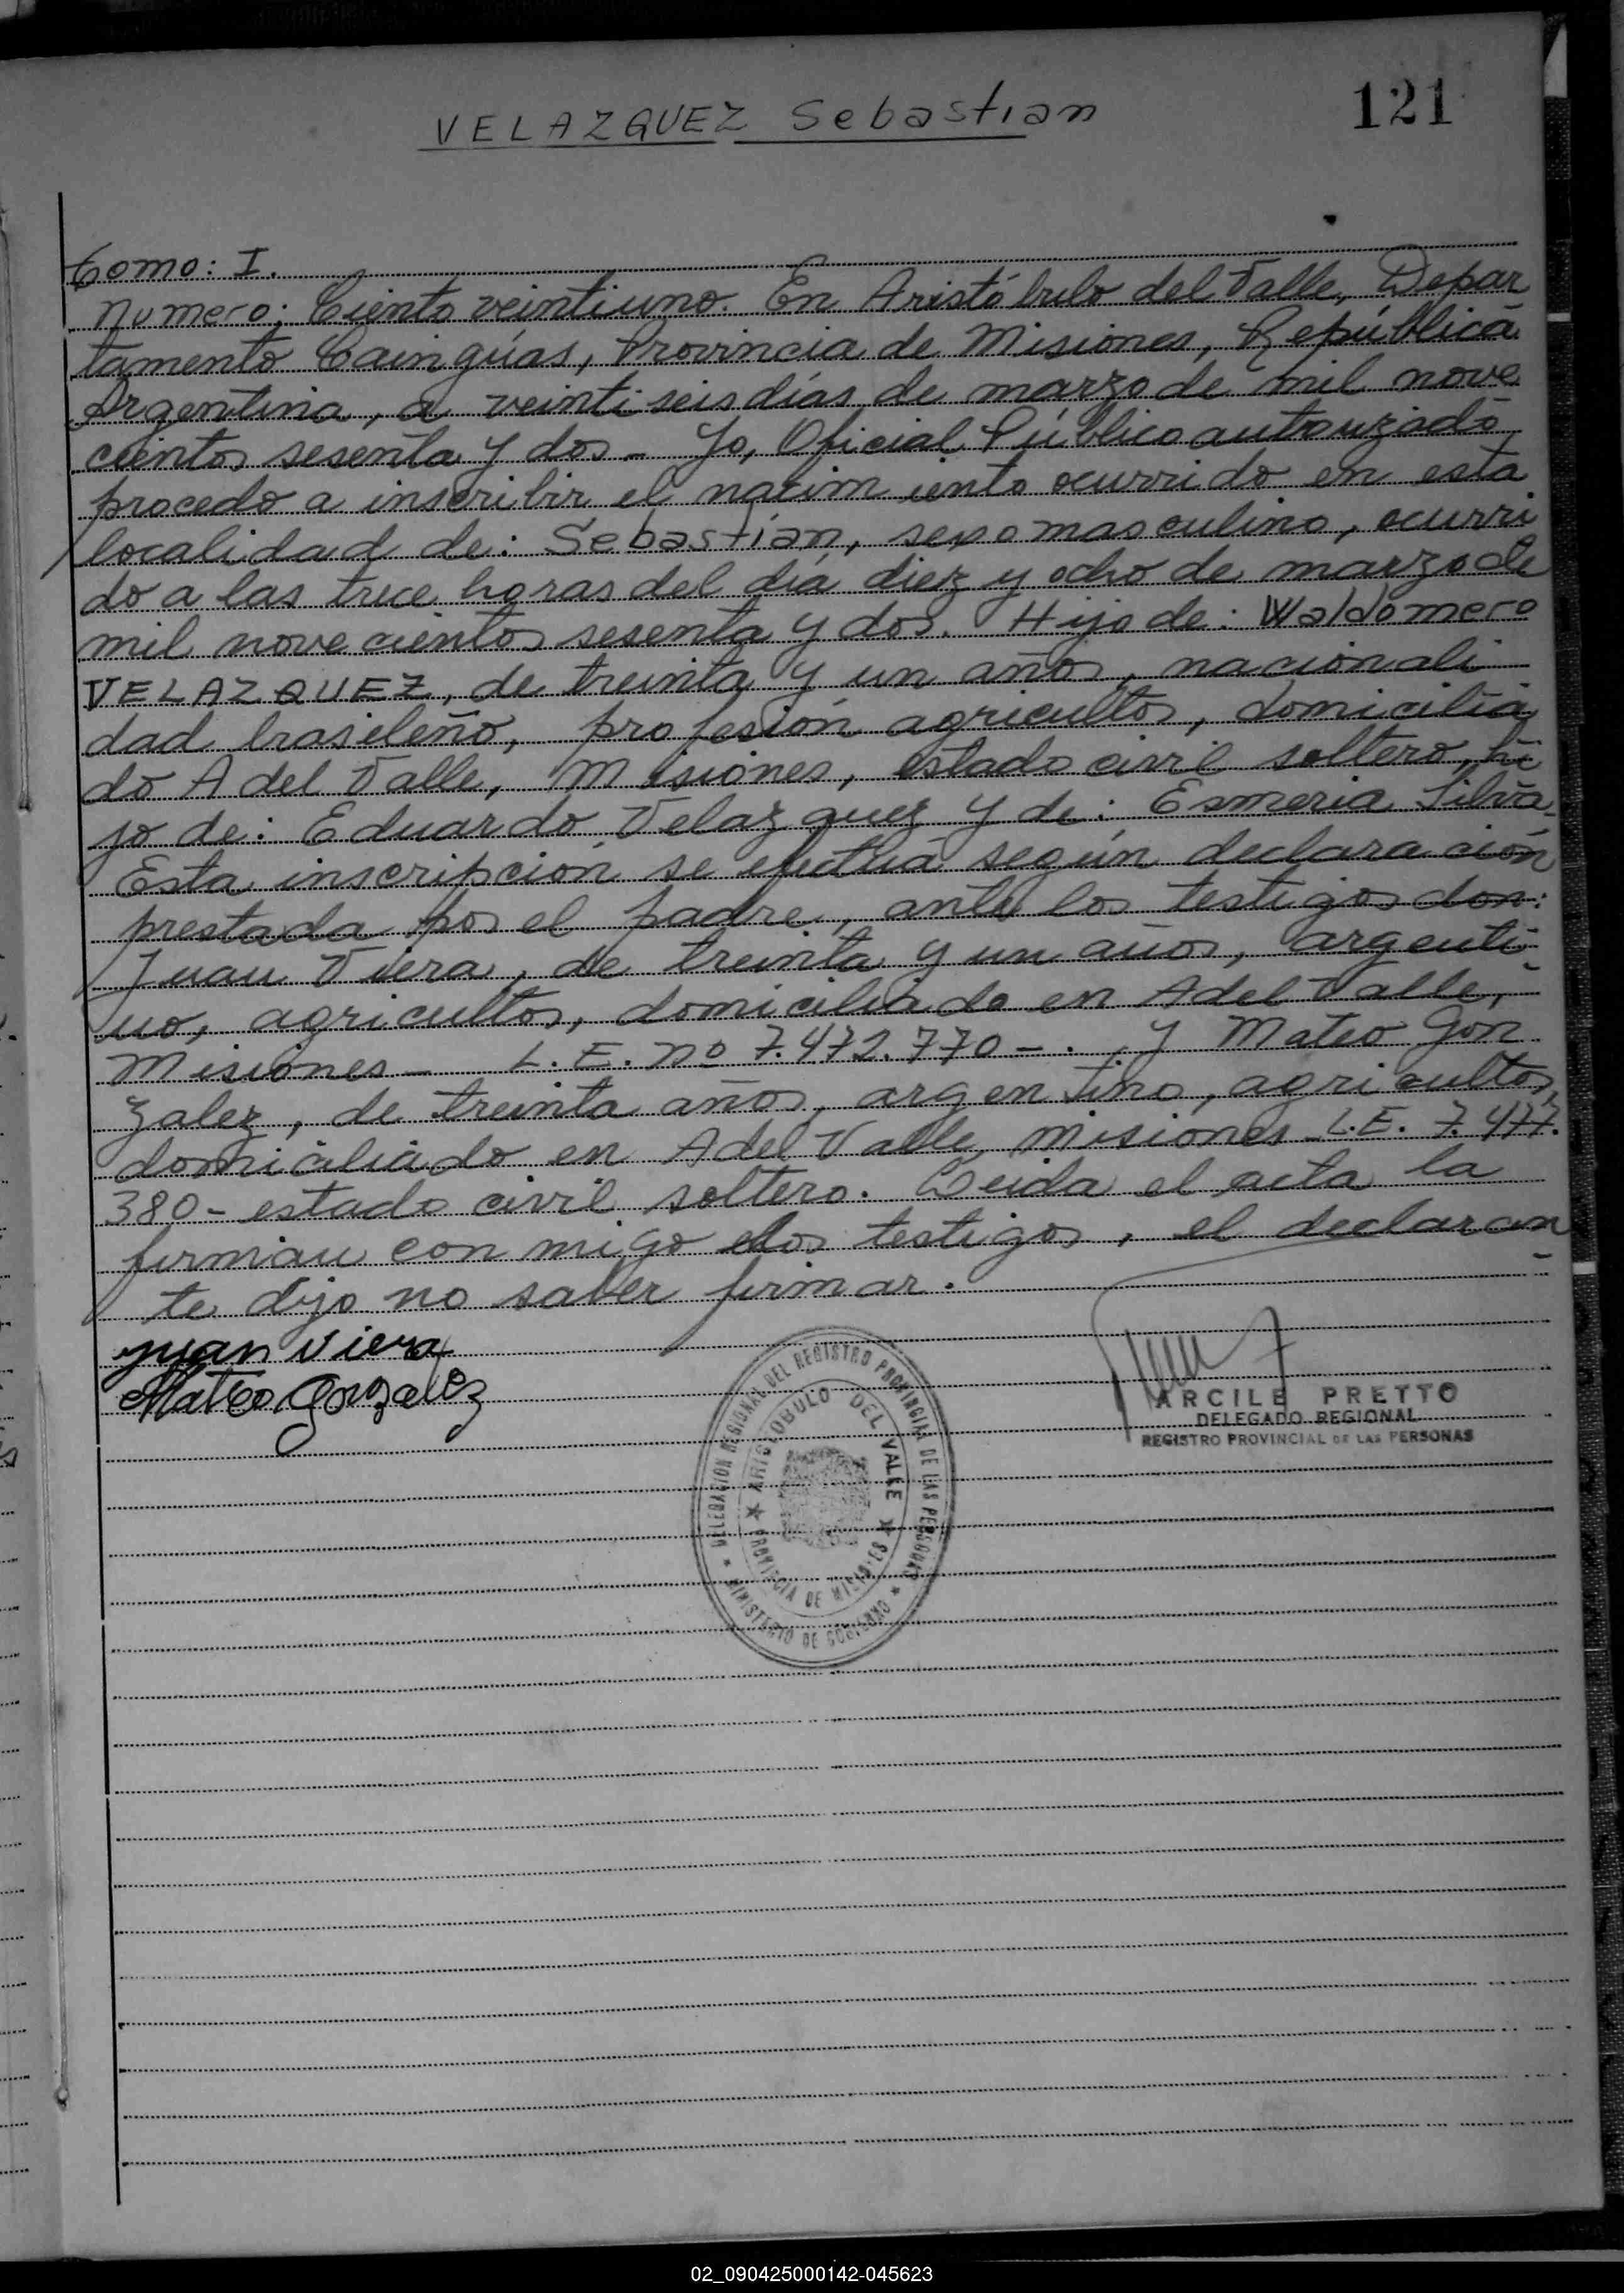 VELAZQUEZ Sebastian
121
Tomo: I.
Numero: Ciento veintiuno. En Aristóbulo del Valle, Depar
tamento Caingúas, Provincia de Misiones, República
Argentina, a veintiseis días de marzo de mil nove
cientos sesenta y dos - Yo, Oficial Público autorizado
procedo a inscribir el nacimiento ocurrido en esta
localidad de: Sebastián, sexo masculino, ocurri
do a las trece horas del día diez y ocho de marzo de
mil novecientos sesenta y dos. Hijo de: Waldomero
VELAZQUEZ, de treinta y un años, nacionali
dad brasileño, profesión agricultor, domicilia
do A del Valle, Misiones, estado civil soltero, hi
jo de: Eduardo Velazquez y de: Esmeria Silva.
Esta inscripción se efectúa según declaración
prestada por el padre, ante los testigos don:
Juan Viera, de treinta y un años, argenti
no, agricultor, domiciliado en A del Valle,
Misiones - L.E. nº 7.472.770 - . y Mateo Gon
zalez, de treinta años, argentino, agricultor,
domiciliado en A del Valle, Misiones L.E. 7.477.
380 - estado civil soltero. Leida el acta la
firman conmigo los testigos, el declaran
te dijo no saber firmar.
Juan Viera
Mateo Gonzalez
DELEGACION REGIONAL DEL REGISTRO PROVINCIAL DE LAS PERSONAS
ARISTOBULO DEL VALLE
PROVINCIA DE MISIONES
MINISTERIO DE GOBIERNO
ARCILE PRETTO
DELEGADO REGIONAL
REGISTRO PROVINCIAL DE LAS PERSONAS
02_090425000142-045623